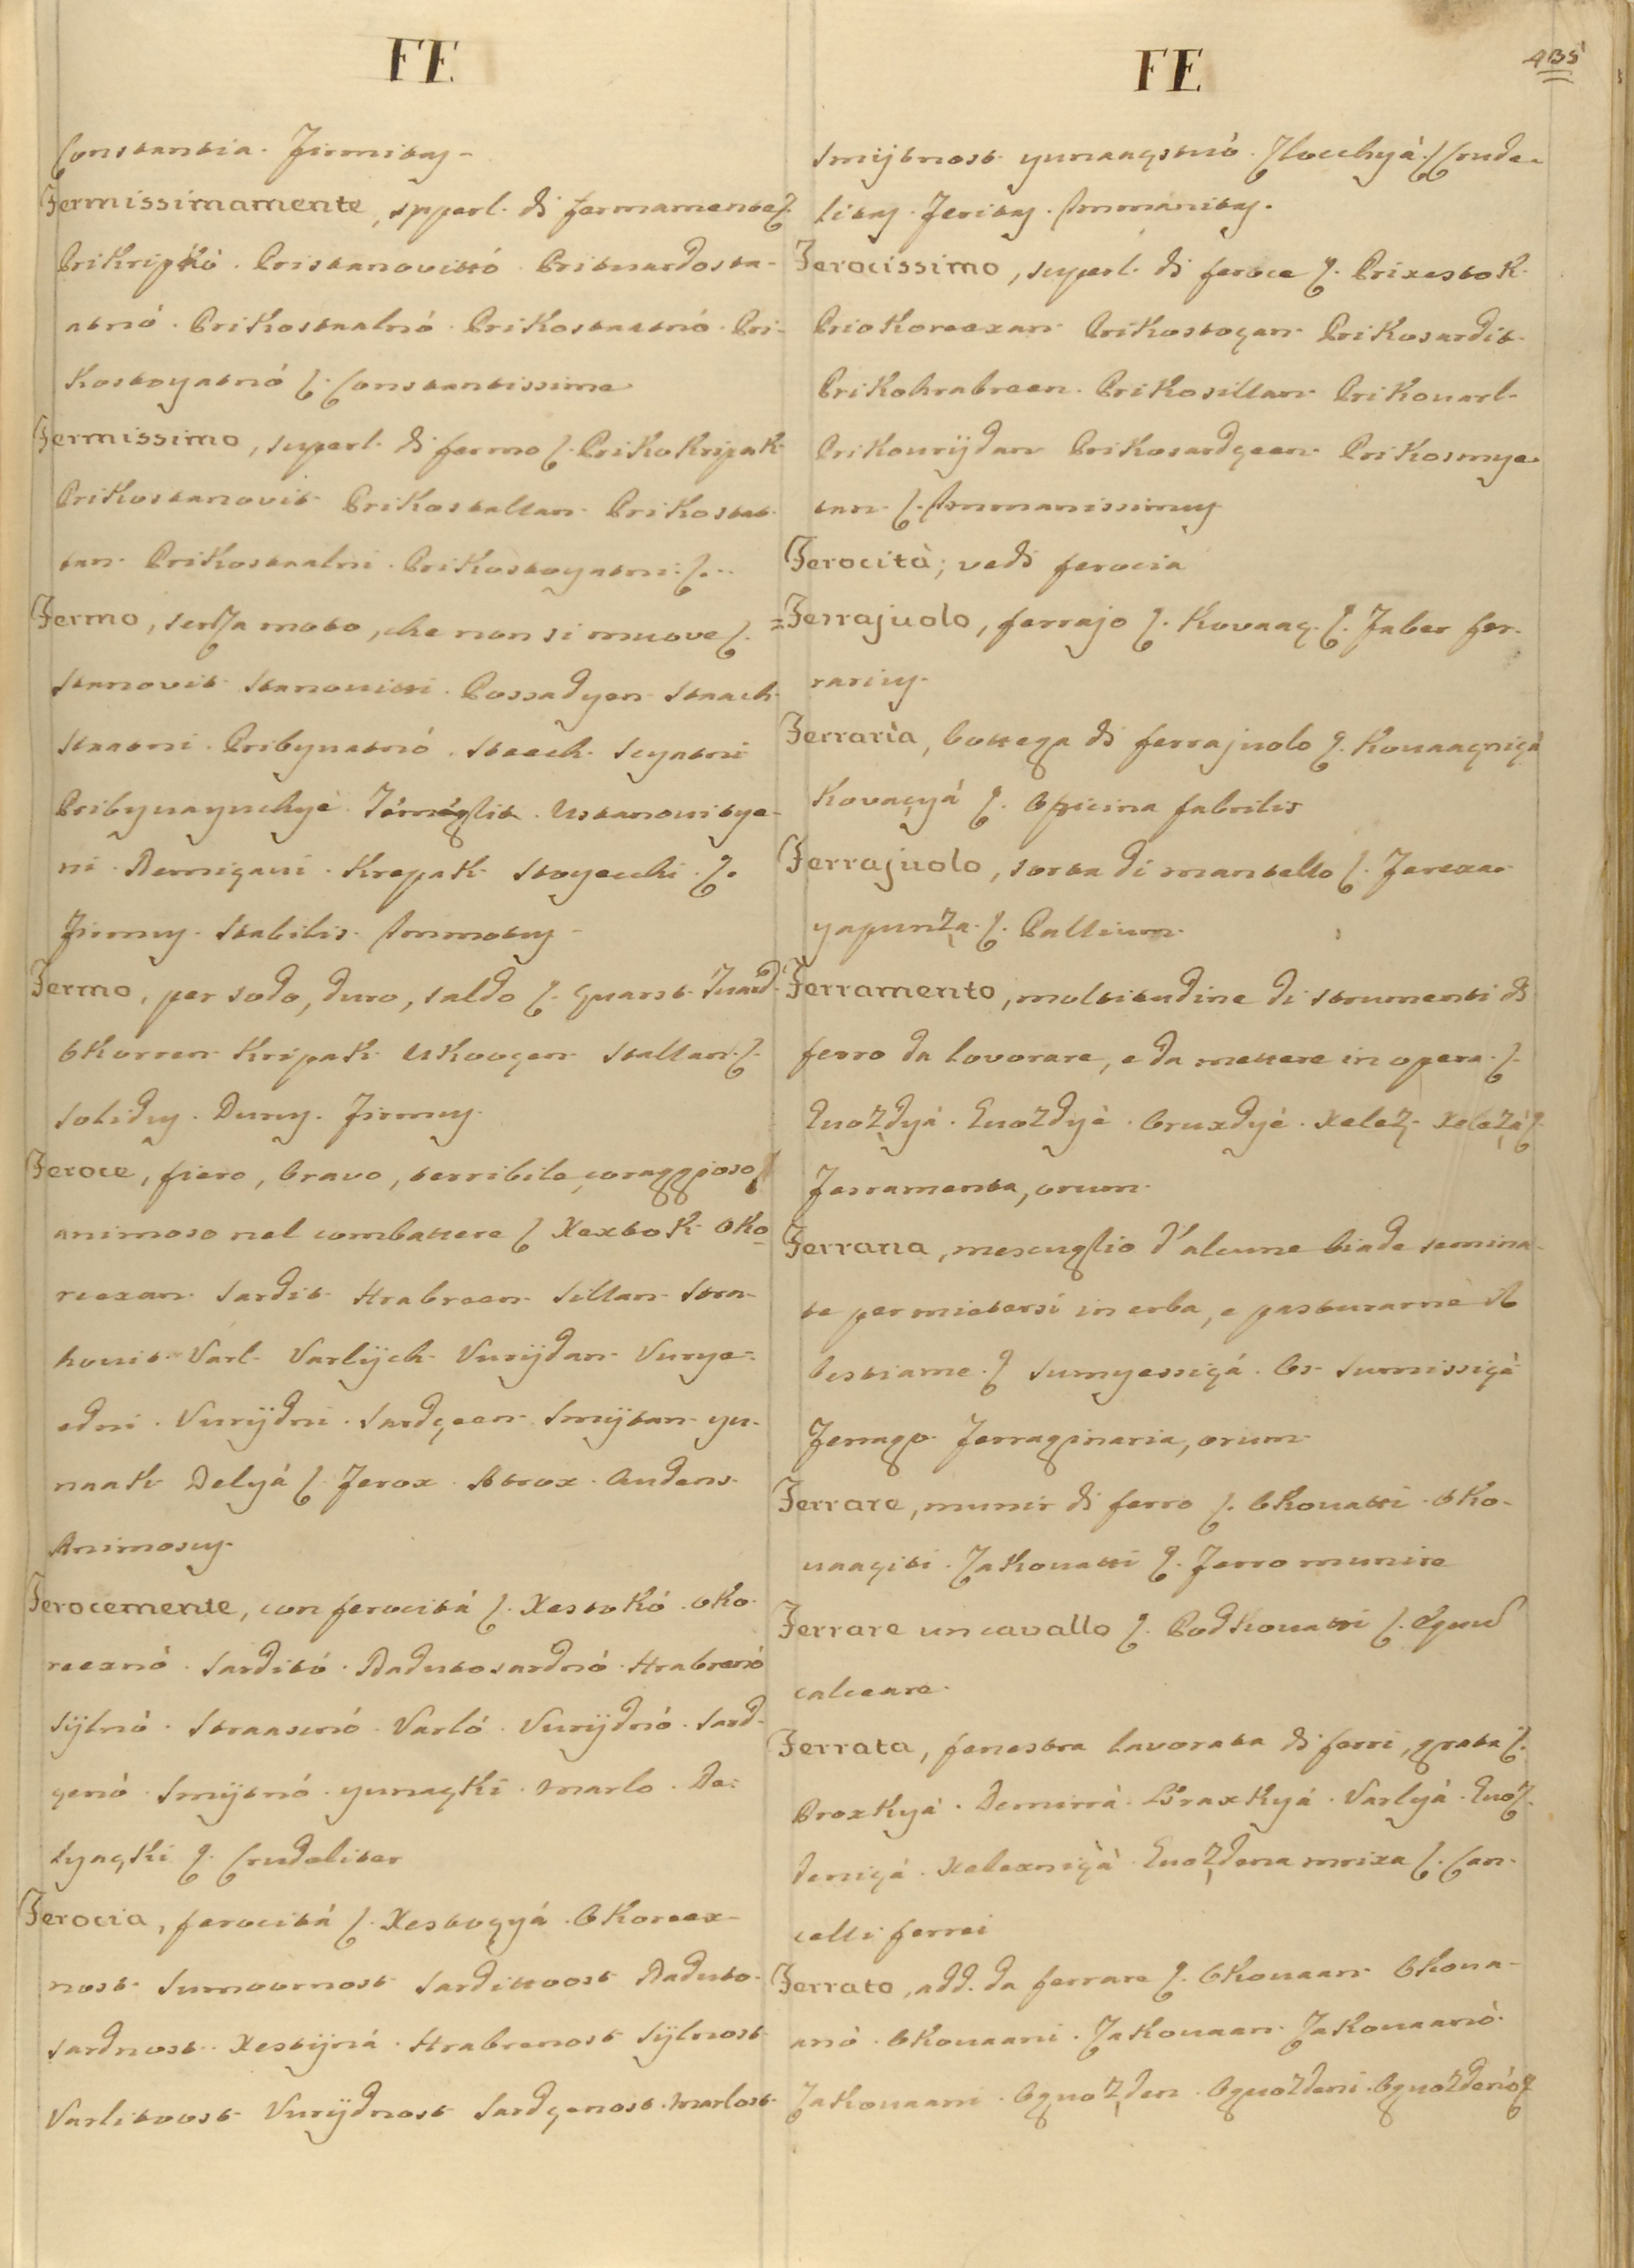 FE
Constantia. Firmitas.
Fermissimamente, superl. di fermamente
Prikripkò. Pristanovittò. Prituardosta-
atnó. Prikostaalnó. Prikostaatnó. Pri-
kostoyatnó. Constantissime
Fermissimo, superl. di fermo. Prikokripak.
Prikostanovit. Prikostallan. Prikostat-
tan. Prikostaalni. Prikostoyatni.
Fermo, senza moto, che non si muove
Stanovit. Stanovitti. Possadyen. Staach.
Staatni. Pribyuatnó. Steech. Scyatni
Pribyuayuchyè. Ustanovitye-
ni. Remigaui. Krepak. Stoyecchi.
Firmus. Stabilis. Immotus.
Fermo, per sodo, duro, saldo. Quarst. Tuard.
Okorren. Kripak. Ukoogen. Stallan.
Solidus. Durus. Firmus.
Feroce, fiero, bravo, terribile, coraggioso
animoso nel combattere. Xextok. Oko-
reexan. Sardit. Hrabreen. Sillan. Stra-
houit. Varl. Varlijch. Vurijdan. Vurye-
edni. Vurijdni. Sardçeen. Smijtan. yu-
naak. Delyá. Ferox. Atrox. Audens.
Animosus.
Ferocemente, con ferocità. Xestokó. Oko-
reexnó. Sarditó. Radutosardnó. Hrabrenó
Sijlnó. Straascnó. Varló. Vurijdnó. Sard-
çenó. Smijtnó. yunaçki. Marlo. De-
lyaçki. Crudeliter
Ferocia, ferocità. Xestoçyá. Okoreex-
nost. Sumoornost. Sardittoost. Raduto-
sardnost. Xestijná. Hrabrenost. Sijlnost.
Varlitoost. Vurijdnost. Sardçenost. Marlost.
FE
435
Smijtnost. yunaaçstuò. Zlocchyà. Crude-
litas. Feritas. Immanitas.
Ferocissimo, superl. di feroce. Prixestok.
Priokoreexan. Prikostoçan. Prikosardit.
Prikohrabreen. Prikosillan. Prikouarl.
Prikourijdan. Prikosardçeen. Prikosmye-
tan. Immanissimus
Ferocità; vedi ferocia
=Ferrajuolo, ferrajo. Kovaaç. Faber fer-
rarius.
Ferrarìa, bottega di ferrajuolo. Kouaaçniçá
Kovaçyá. Officina fabrilis
Ferrajuolo, sorta di mantello. Ferexa.
yapunza. Pallium.
Ferramento, moltitudine di strumenti di
ferro da lovorare, e da mettere in opera.
Guozdyá. Guozdyè. Oruxdyé. Xelez. Xelezà.
Ferramenta, orum.
Ferrana, mescuglio d'alcune biade semina-
te per mietersi in erba, e pasturarne il
bestiame. Sumyessiçá. Os. Sumissiçà
Ferrago. Ferraginaria, orum.
Ferrare, munir di ferro. Okouatti. Oko-
uaaçiti. Zakouatti. Ferro munire
Ferrare un cavallo. Podkouatti. Equus
calceare.
Ferrata, fenestra lavorata di ferri, grata.
Proxkyá. Demirrà. Praxkyá. Varlyà. Guoz-
deniçá. Xelexniçà. Guozdena mrixa. Can-
celli ferrei
Ferrato, add. da ferrare. Okouaan. Okoua-
anò. Okouaani. Zakouaan. Zakouaanò.
Zakouaani. Oguozden. Oguozdeni. Oguozdenò.